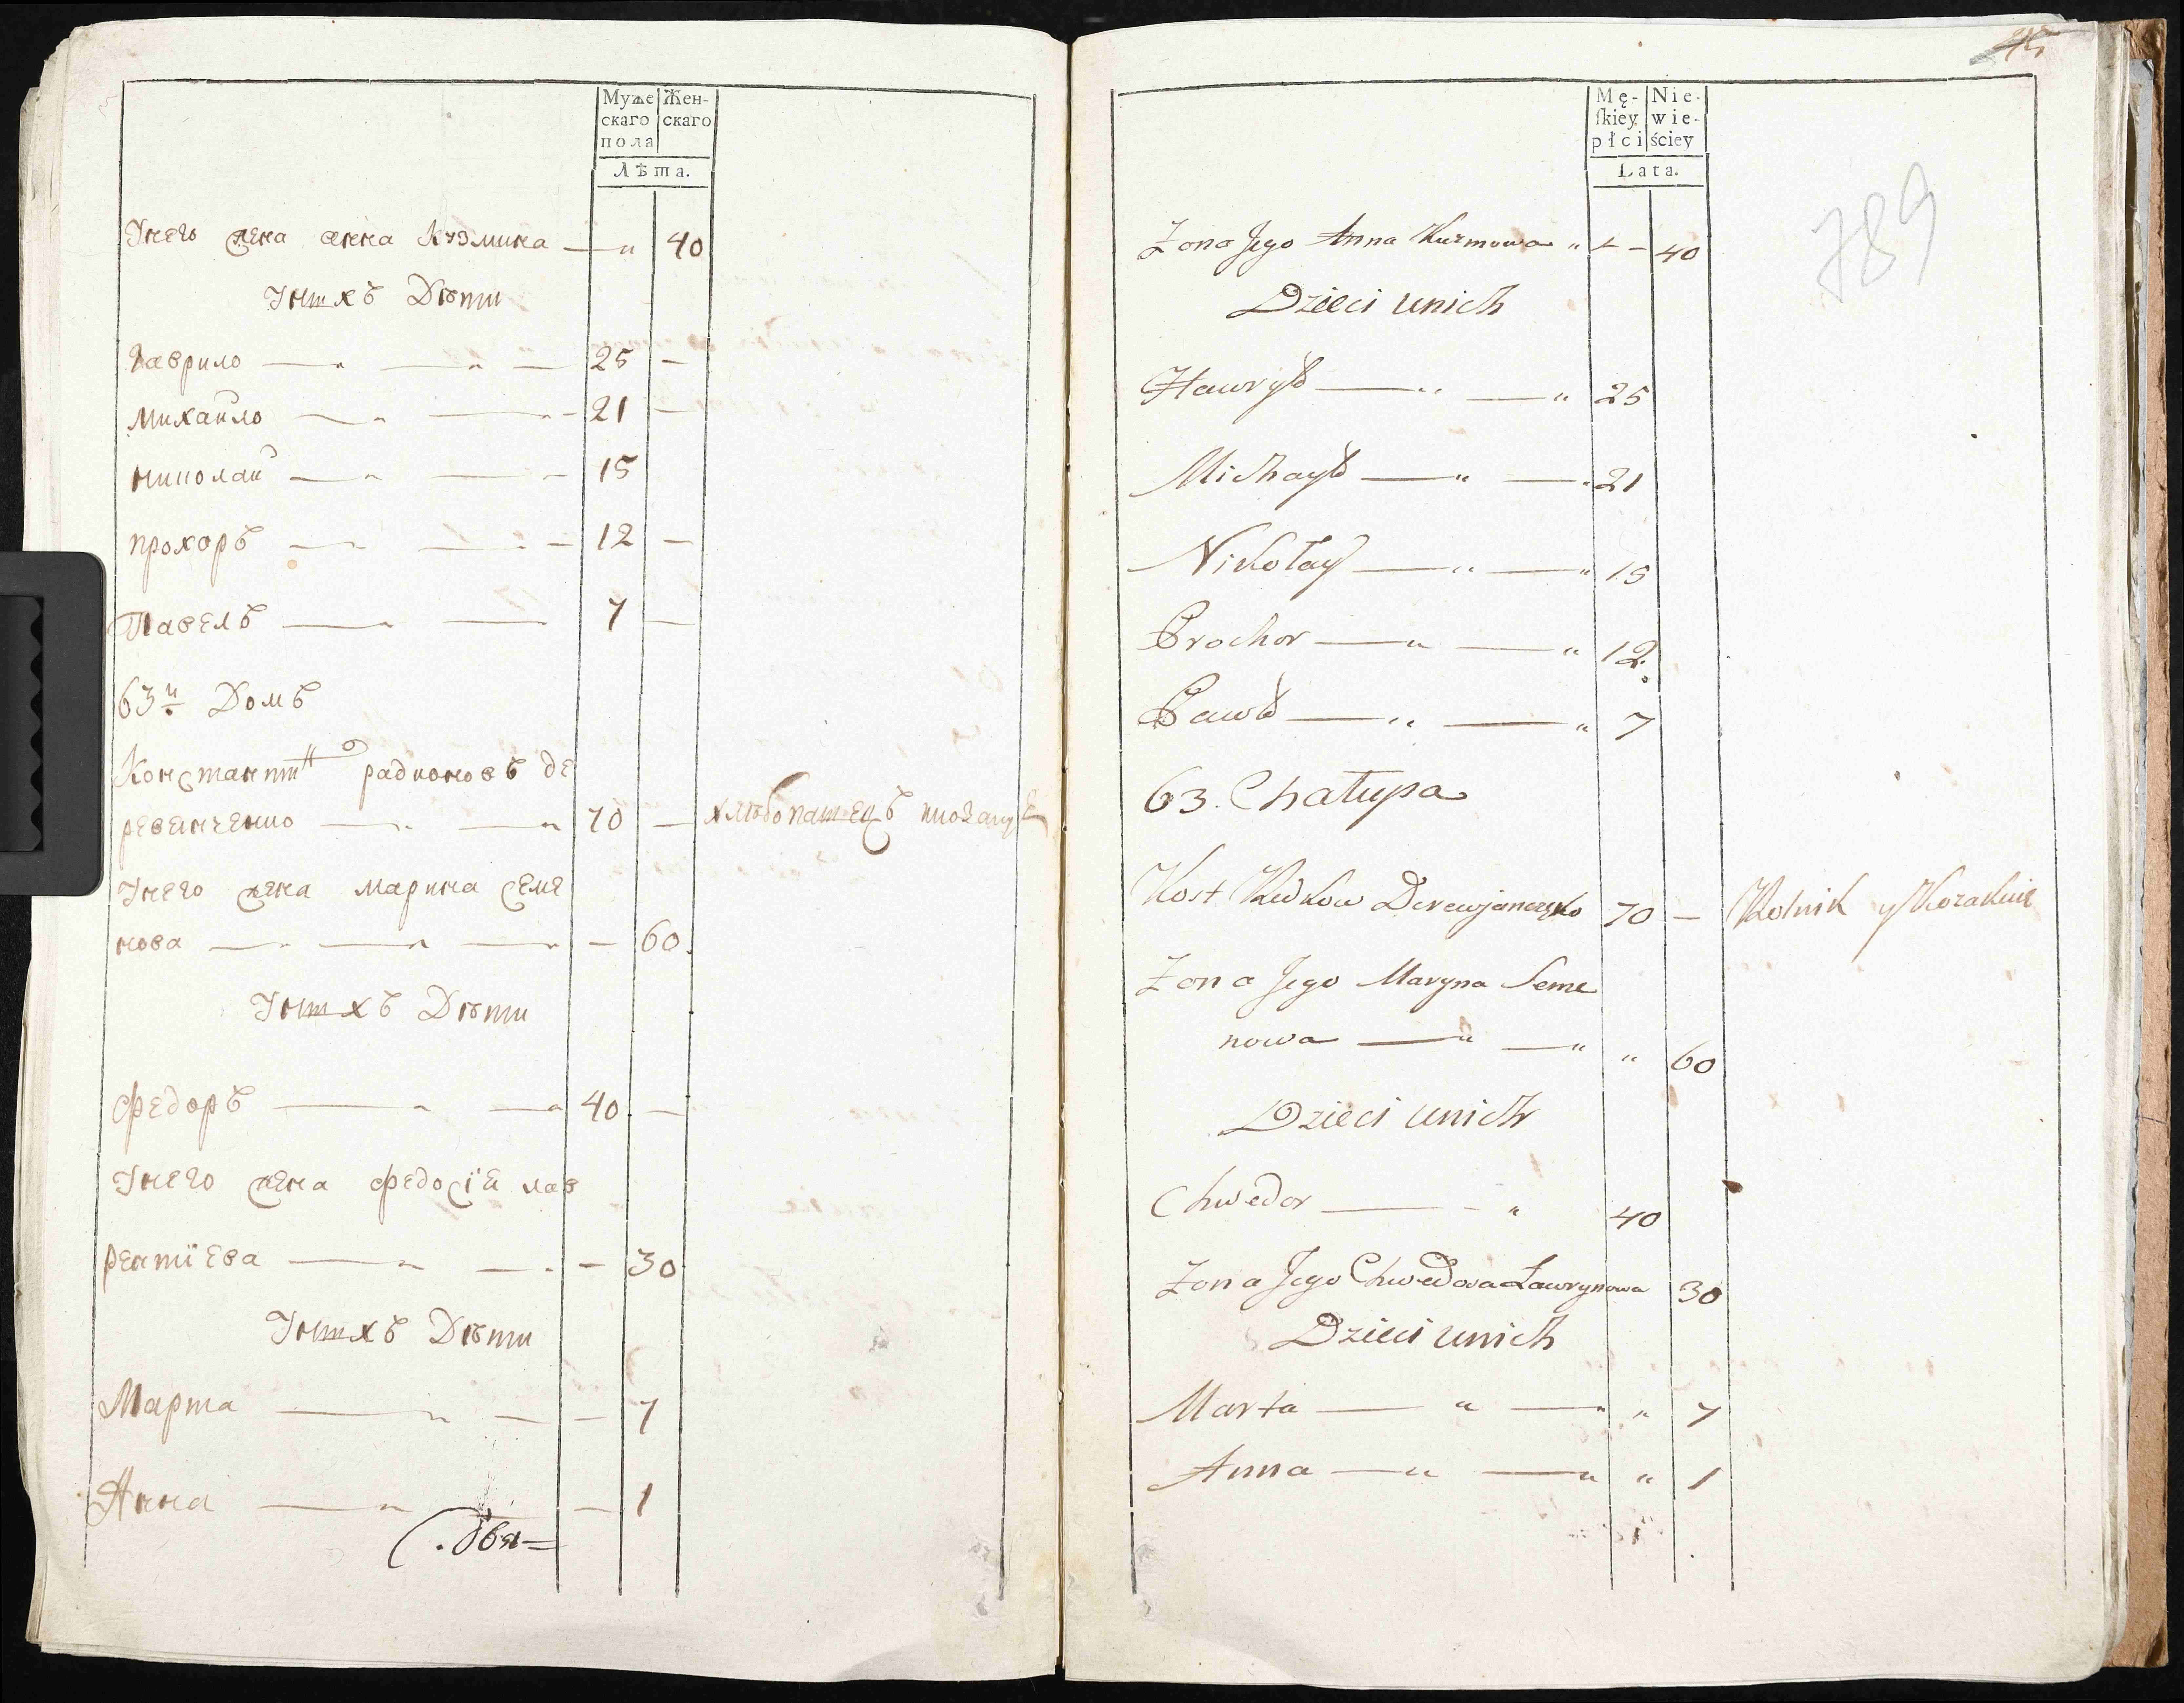 Муже
скаго
пола
Жен-
скаго
Лѣта.
Унего жена анна кузмина — „ 40
Унихъ Дѣти
Гаврило — „ — „ — 25 —
михайло — „ — „ - 21 —
николай — „ — - 15
прохоръ — „ — - 12 —
Павелъ — „ — 7 —
63й Домъ
Константи радионовъ де
ревенченко — „ — „ 70 — хлѣбопашецъ
Унего жена марина семе
нова — „ — „ — „ — 60.
Унихъ Дѣти
федоръ — „ — „ 40. —
Унего жена федосіѣ лав
рентіева — „ — . — 30
Унихъ Дѣти
Марта — „ — — 7
Анна — „ — 1
45
Mę-
ſkiey
płci
Nie-
wie-
ściey
Lata.
789
Zona Jego Anna Kuzmowa „ — 40
Dzieci unich
Hawryło — „ — „ 25
Michayło — „ — „ 21
Nikołay — „ — „ 15
Prochor — „ — „ 12.
Pawło — „ — „ 7
63. Chałupa
Kost Derewjanczęko 70 — Rolnik y
Zona Jego Maryna Seme
nowa — „ — „ „ 60
Dzieci unich
Chwedor — - „ 40
Zona Jego Chwedosia Ławrynowa 30
Dzieci unich
Marta — „ — „ „ 7
Anna — „ — „ „ 1